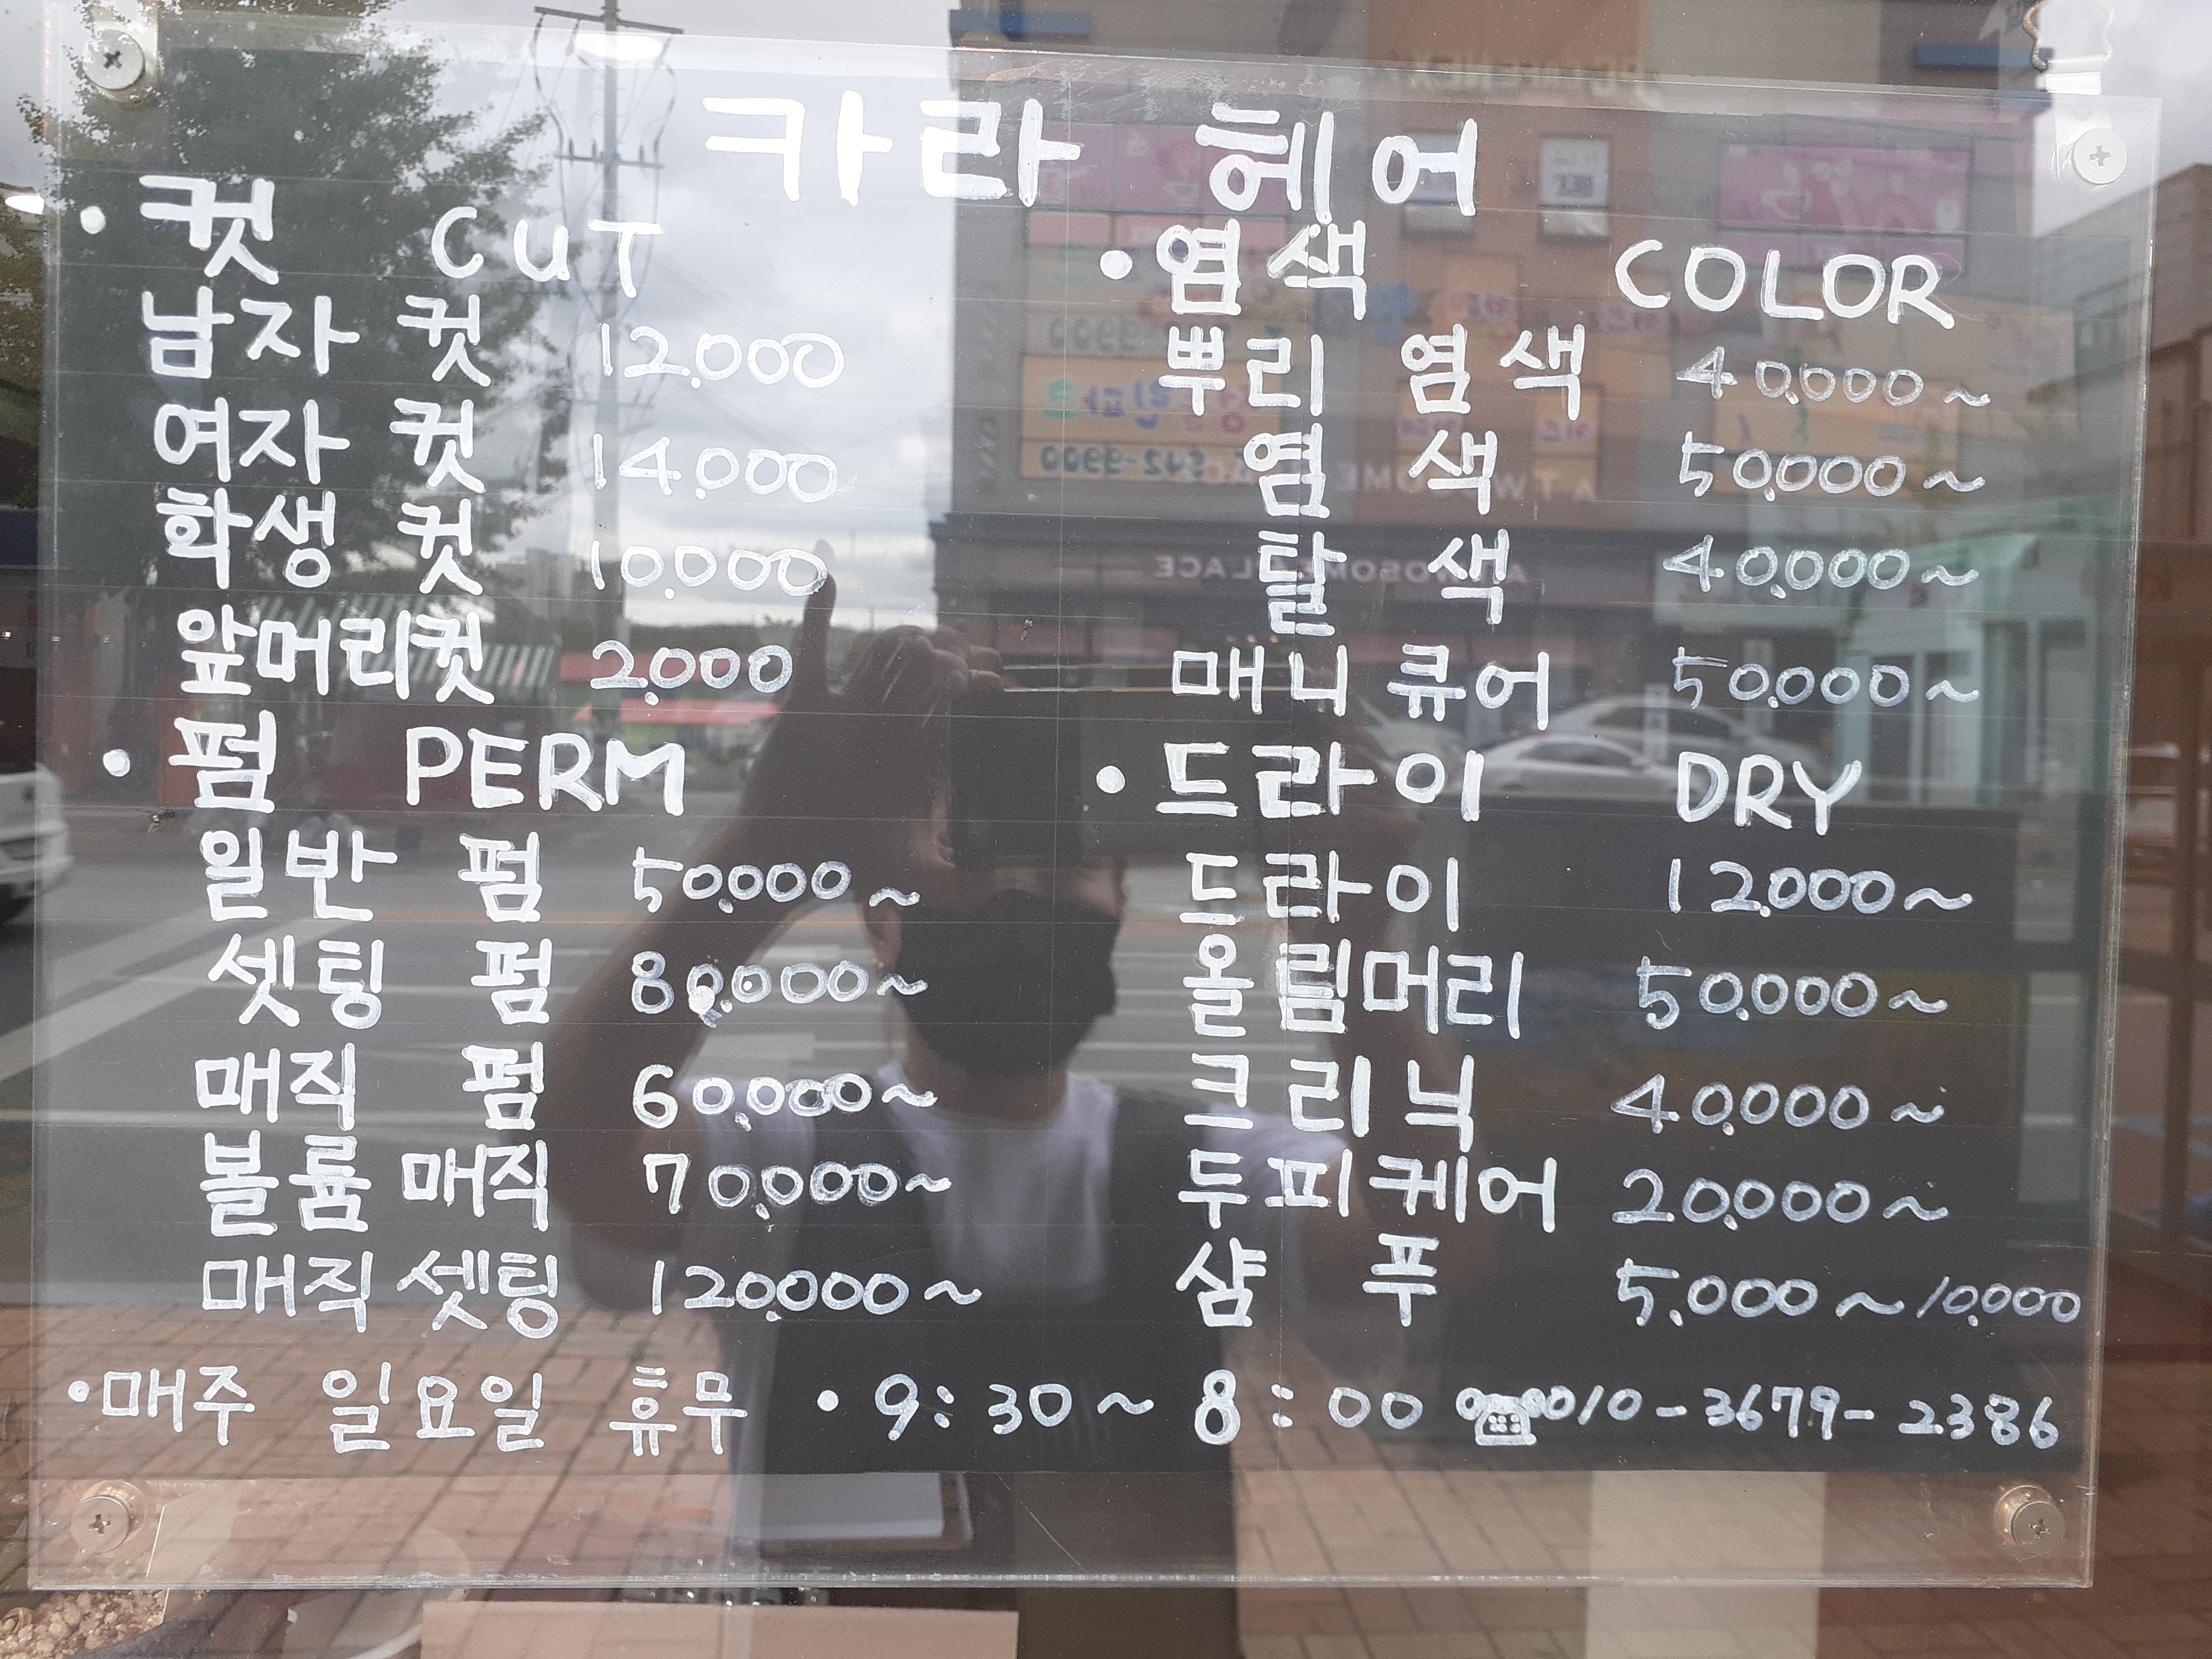 카라 헤어
• 컷 CUT
남자 컷 12.000
여자 컷 14.000
학생 컷 10.000
앞머리컷 2.000
• 펌 PERM
일반 펌 50.000~
셋팅 펌 80.000~
매직 펌 60.000~
볼륨매직 70.000~
매직셋팅 120.000~
• 염색 COLOR
뿌리 염색 40.000~
염색 50.000~
탈색 40.000~
매니큐어 50.000~
• 드라이 DRY
드라이 12.000~
올림머리 50.000~
크리닉 40.000~
두피케어 20.000~
샴푸 5.000~10.000
• 매주 일요일 휴무 • 9:30~8:00 ☎010-3679-2386